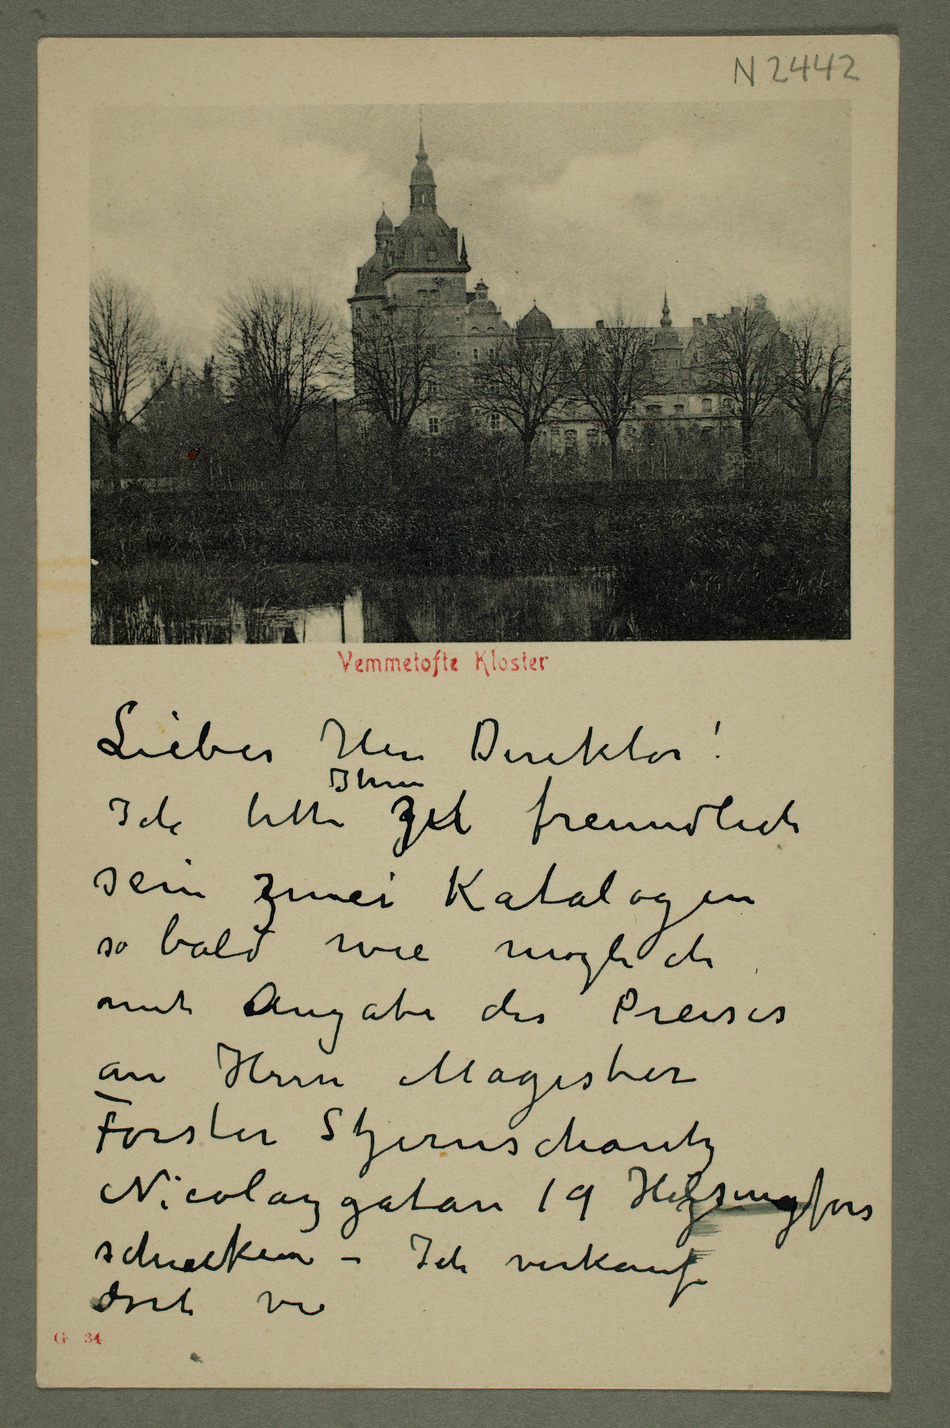 N 2442
Vemmetofte Kloster
Lieber Herr Direktor!
Ihnen
Ich bitte freundlich
sein zwei Katalogen
so bald wie möglich
mit Angabe des Preises
an Herrn Magister
Forster Stjernschantz
Nicolaygatan 19 Helsingfors
schicken – Ich verkauf
dort
G 34